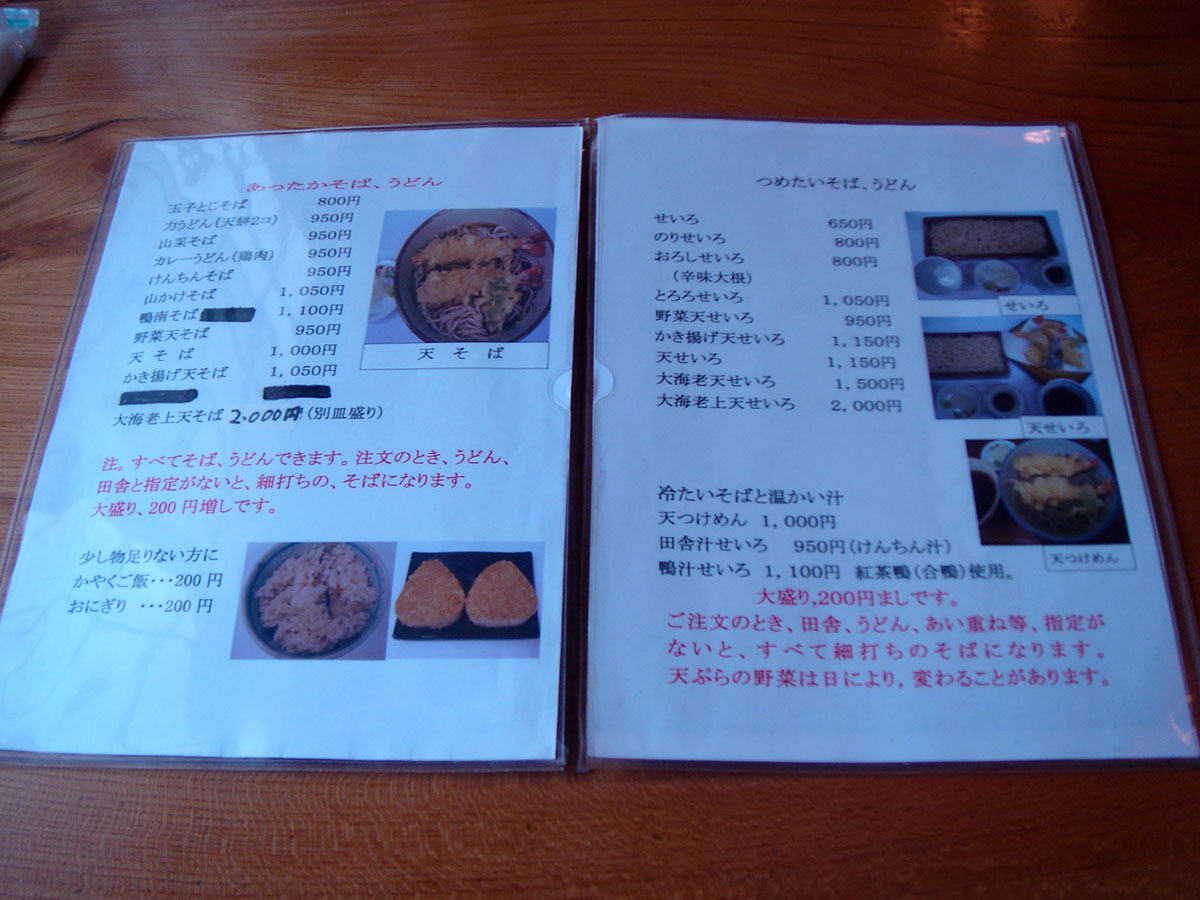 あったかそば、うどん
玉子とじそば 800円
力うどん(天餅2コ) 950円
山采そば 950円
カレーうどん(鶏肉) 950円
けんちんそば 950円
山かけそば 1,050円
鴨南そば 1,100円
野菜天そば 950円
天そば 1,000円
かき揚げ天そば 1,050円
大海老上天そば 2.000円(別皿盛り)
天そば
注。すべてそば、うどんできます。注文のとき、うどん、
田舎と指定がないと、細打ちの、そばになります。
大盛り、200円増しです。
少し物足りない方に
かやくご飯・・・200円
おにぎり ・・・200円
つめたいそば、うどん
せいろ 650円
のりせいろ 800円
おろしせいろ 800円
(辛味大根)
とろろせいろ 1,050円
野菜天せいろ 950円
かき揚げ天せいろ 1,150円
天せいろ 1,150円
大海老天せいろ 1,500円
大海老上天せいろ 2,000円
せいろ
天せいろ
天つけめん
冷たいそばと温かい汁
天つけめん 1,000円
田舎汁せいろ 950円(けんちん汁)
鴨汁せいろ 1,100円 紅茶鴨(合鴨)使用。
大盛り,200円ましです。
ご注文のとき、田舎、うどん、あい重ね等、指定が
ないと、すべて細打ちのそばになります。
天ぷらの野菜は日により,変わることがあります。